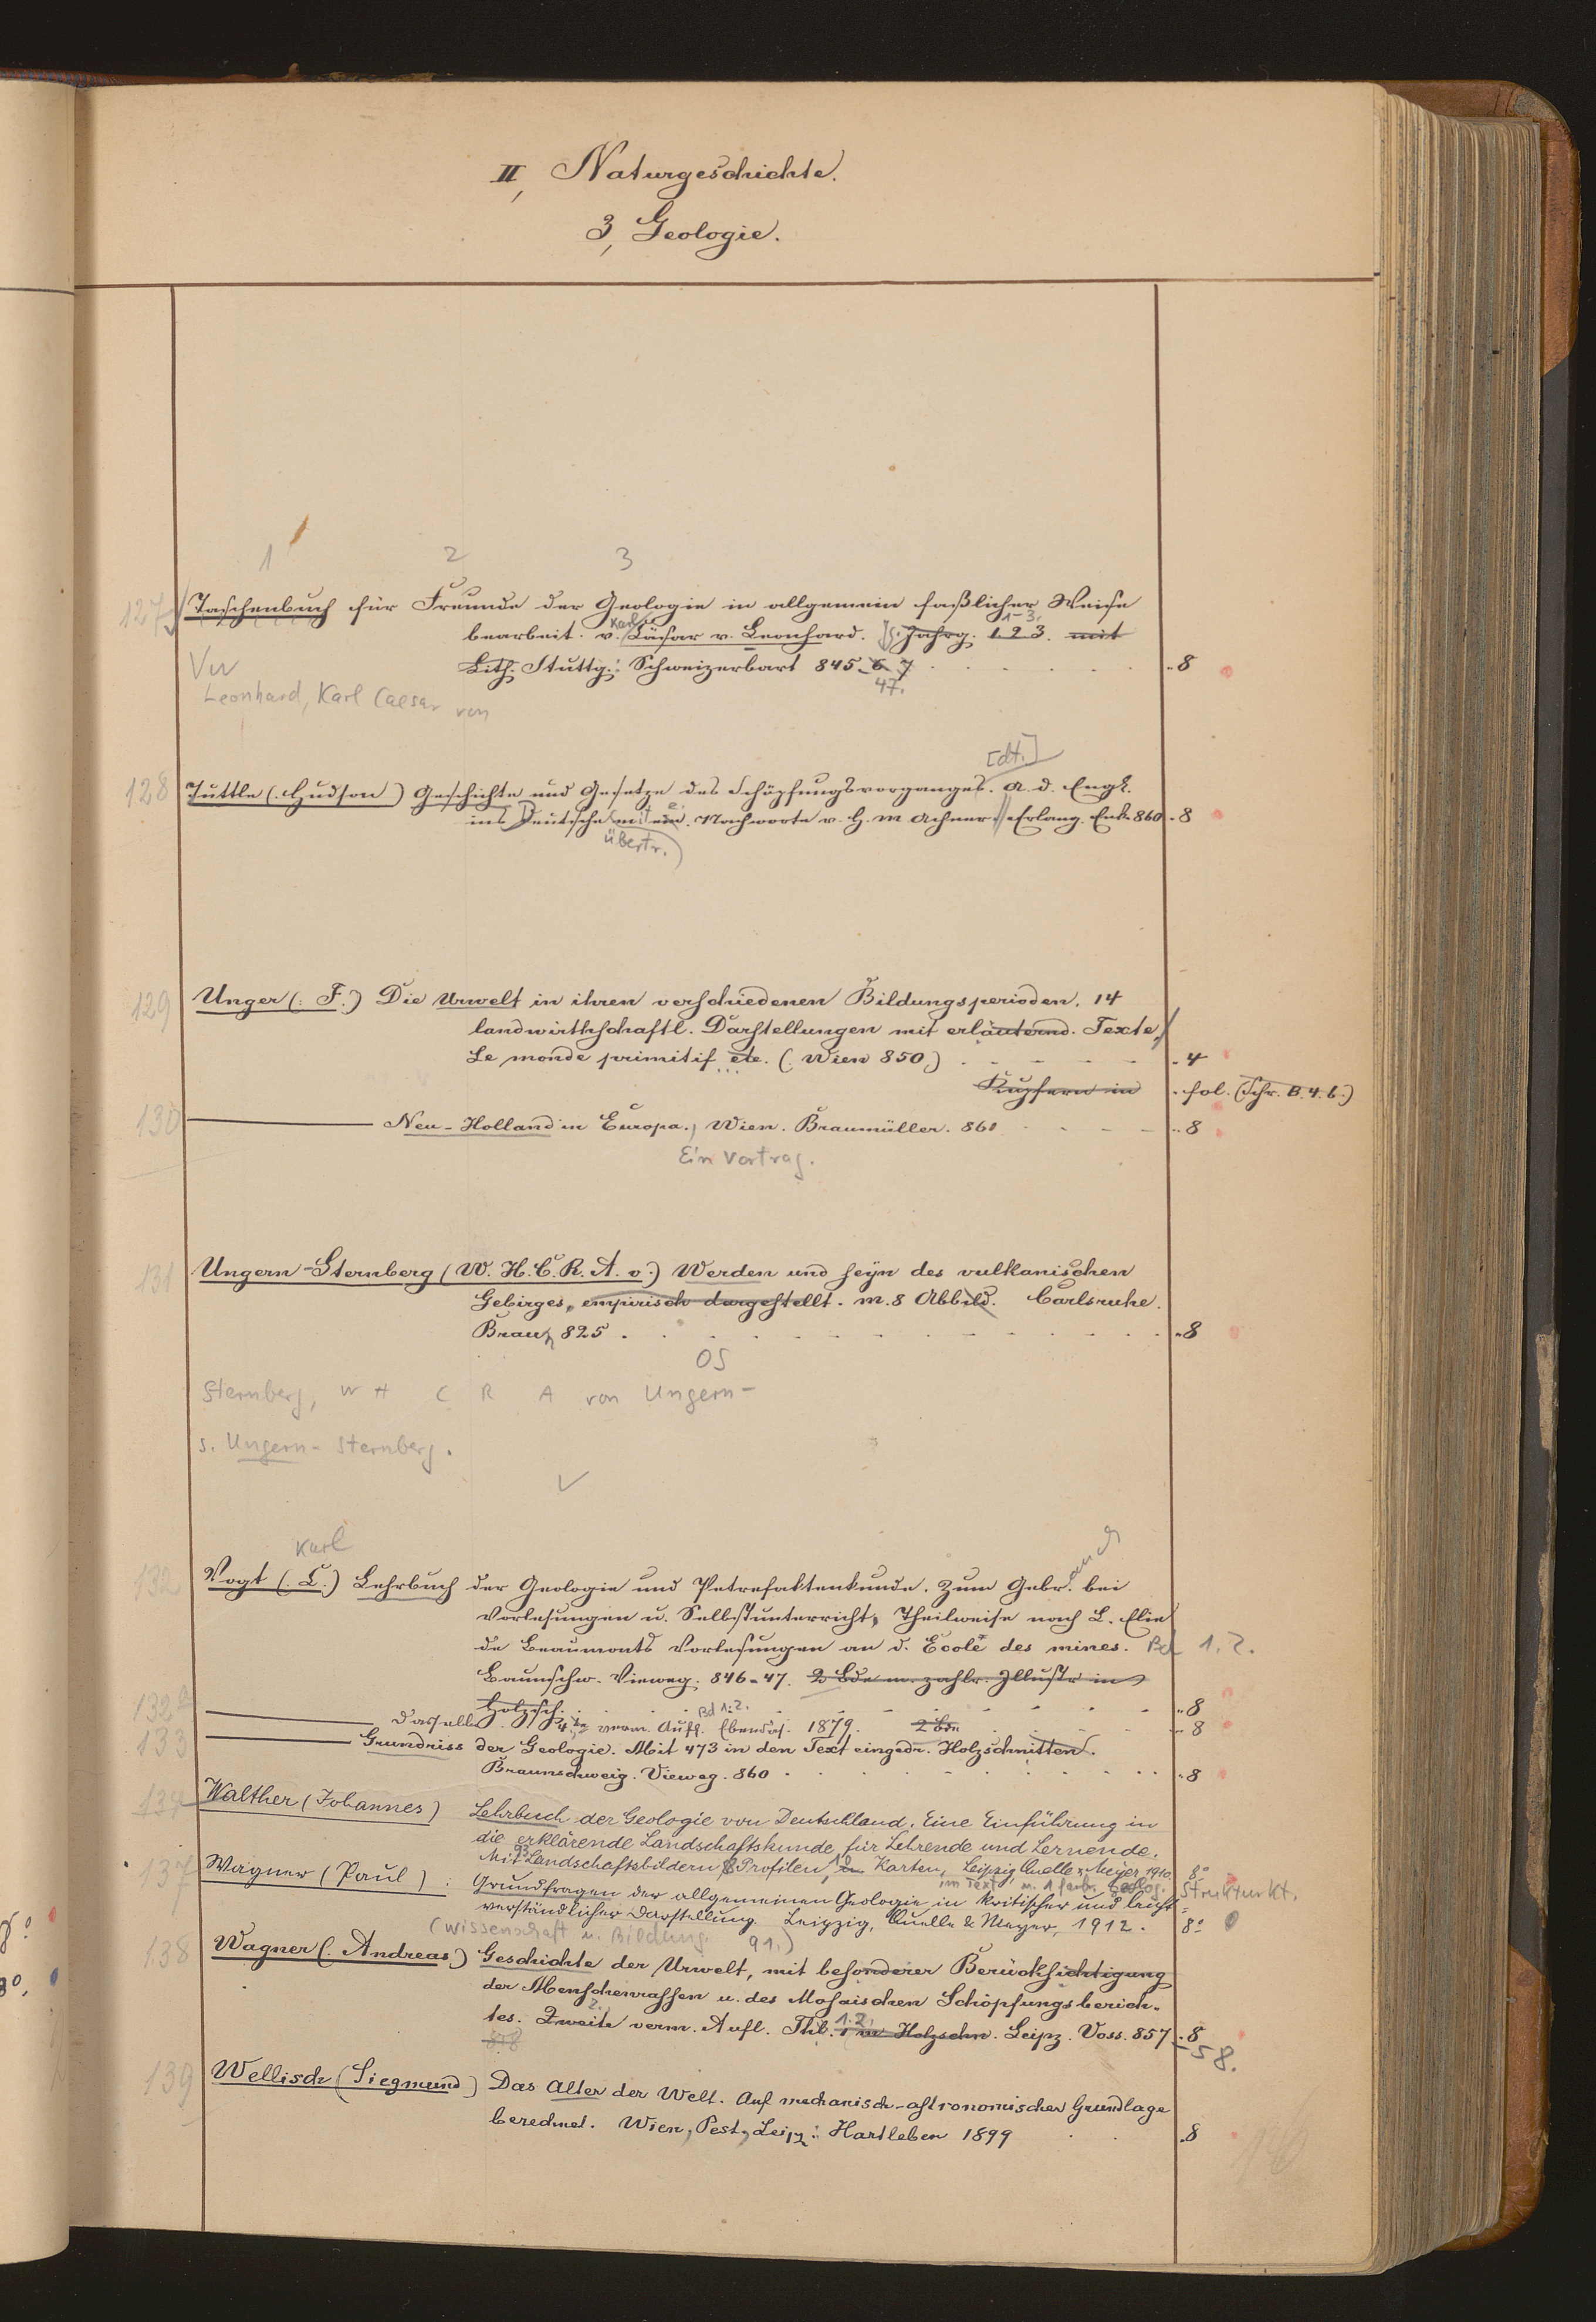 II, Naturgeschichte.
3, Geologie.
1 2 3
127 Taschenbuch für Freunde der Geologie in allgemein faßlicher Weise
bearbeit. v. Karl Cäsar v. Leonhard. Jg. Jahrg. 1 2 3. 1-3. mit
Lith. Stuttg. Schweizerbart 845-6 7 47. 8
Vw
Leonhard, Karl Caesar von
[dt.]
128 Tuttle (: Hudson) Geschichte und Gesetze des Schöpfungsvorganges. A. d. Engl.
ins Deutsche mit ein. Nachworte v. H. M Achner. Erlang. Enke 860 8
übertr.)
129 Unger (: F.) Die Urwelt in ihren verschiedenen Bildungsperioden. 14
landwirthschaftl. Darstellungen mit erläuternd. Texte.
Le monde primitif etc. (: Wien 850.) 4
Kupfern in fol. (Schr. B. 4. b.)
130 Neu-Holland in Europa. Wien. Braumüller. 861 8
Ein Vortrag.
131 Ungern-Sternberg (W. H. C. R. A. v.) Werden und Seyn des vulkanischen
Gebirges, empirisch dargestellt. m. 8 Abbild. Carlsruhe.
Braun 825. 8
OS
Sternberg, W H C R A von Ungern-
s. Ungern-Sternberg.
Karl
132 Vogt (: C.) Lehrbuch der Geologie und Petrefaktenkunde. Zum Gebr. bei
Vorlesungen u. Selbstunterricht, Theilweise nach L. Elie
de Beaumonts Vorlesungen an d. Ecole des mines. Bd 1. 2.
Braunschw. Vieweg. 846-47. 2 Bde m. zahlr. Illustr in
Holzsch. 8
132a Dasselbe. 4te verm. Aufl. Bd 1. 2. Ebendas. 1879. 2 Bde 8
133 Grundriss der Geologie. Mit 473 in den Text eingedr. Holzschnitten.
Braunschweig. Vieweg. 860 8
134 Walther (Johannes) Lehrbuch der Geologie von Deutschland. Eine Einführung in
die erklärende Landschaftskunde für Lehrende und Lernende.
Mit Landschaftsbildern, Profilen, 10 Karten, Leipzig, Quelle & Meyer 1910. 8°
im Text u. 1 farb. geolog. Strukturkt.
137 Wagner (Paul): Grundfragen der allgemeinen Geologie in kritischer und leicht=
verständlicher Darstellung. Leipzig, Quelle & Meyer, 1912. 8°
(Wissenschaft u. Bildung. 91.)
138 Wagner (: Andreas) Geschichte der Urwelt, mit besonderer Berücksichtigung
der Menschenrassen u. des Mosaischen Schöpfungsberich-
tes. Zweite 2. verm. Aufl. Thl. 1.2. m Holzschn. Leipz. Voss. 857 8
858 -58.
139 Wellisch (Siegmund) Das Alter der Welt. Auf mechanisch-astronomischer Grundlage
berechnet. Wien, Pest, Leipz: Hartleben 1899 8